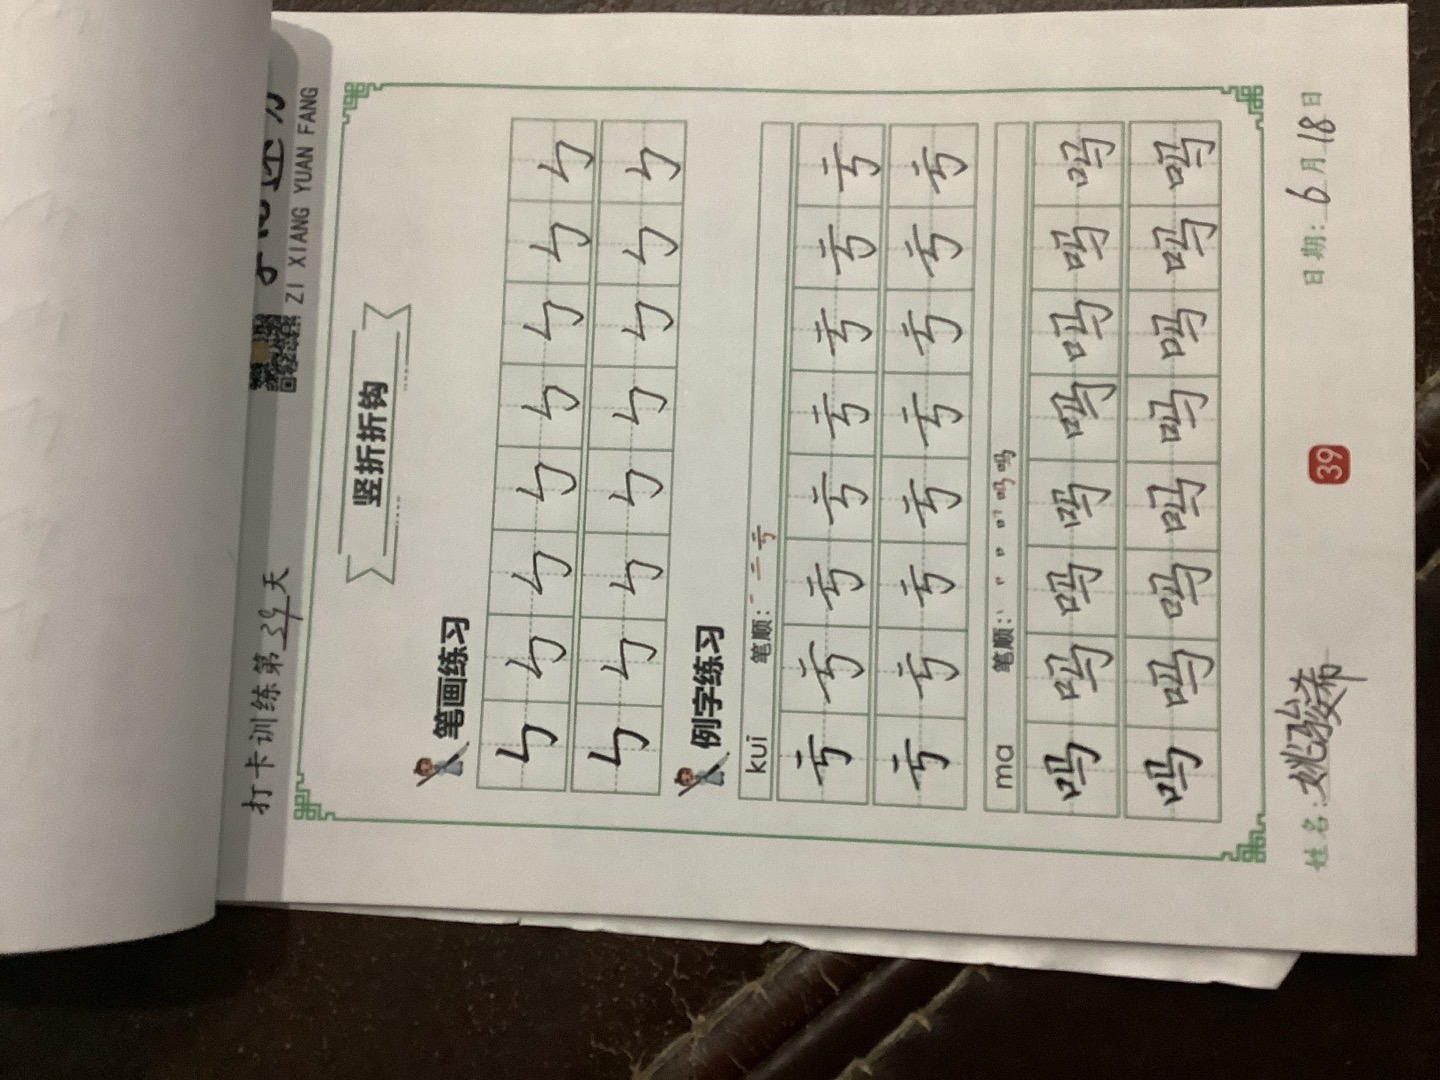 ZI XIANG YUAN FANG
打卡训练第39天
竖折折钩
笔画练习
ㄣㄣㄣㄣㄣㄣㄣㄣ
ㄣㄣㄣㄣㄣㄣㄣㄣ
例字练习
kuī 笔顺:一 二 亏
亏亏亏亏亏亏亏亏
亏亏亏亏亏亏亏亏
ma 笔顺:
吗吗吗吗吗吗吗吗
吗吗吗吗吗吗吗吗
姓名:姚骏希 39 日期:6月18日